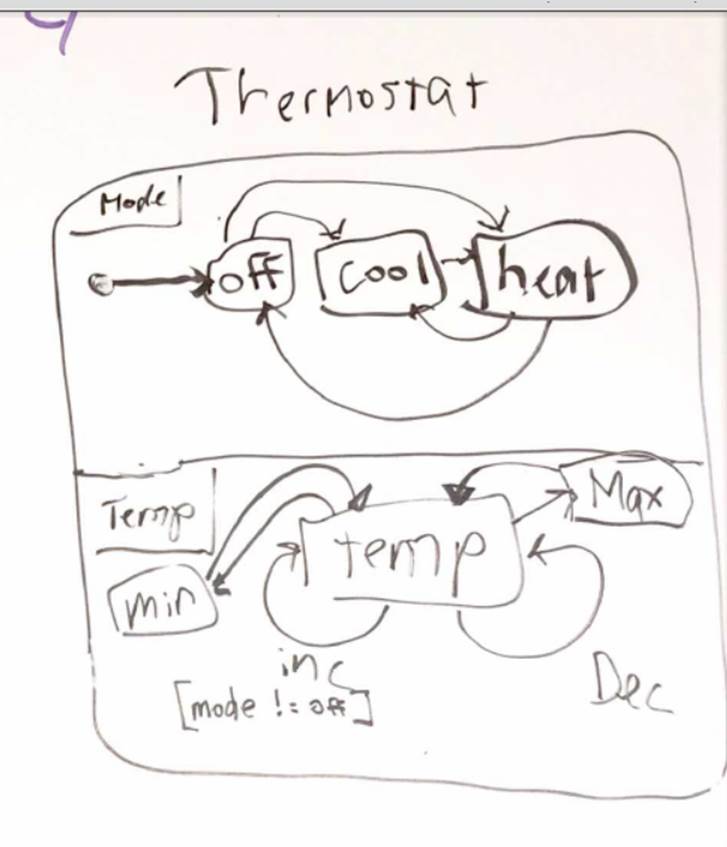 Thermostat
Mode
off cool heat
Temp
Max
temp
min
inc
Dec
[mode != off]